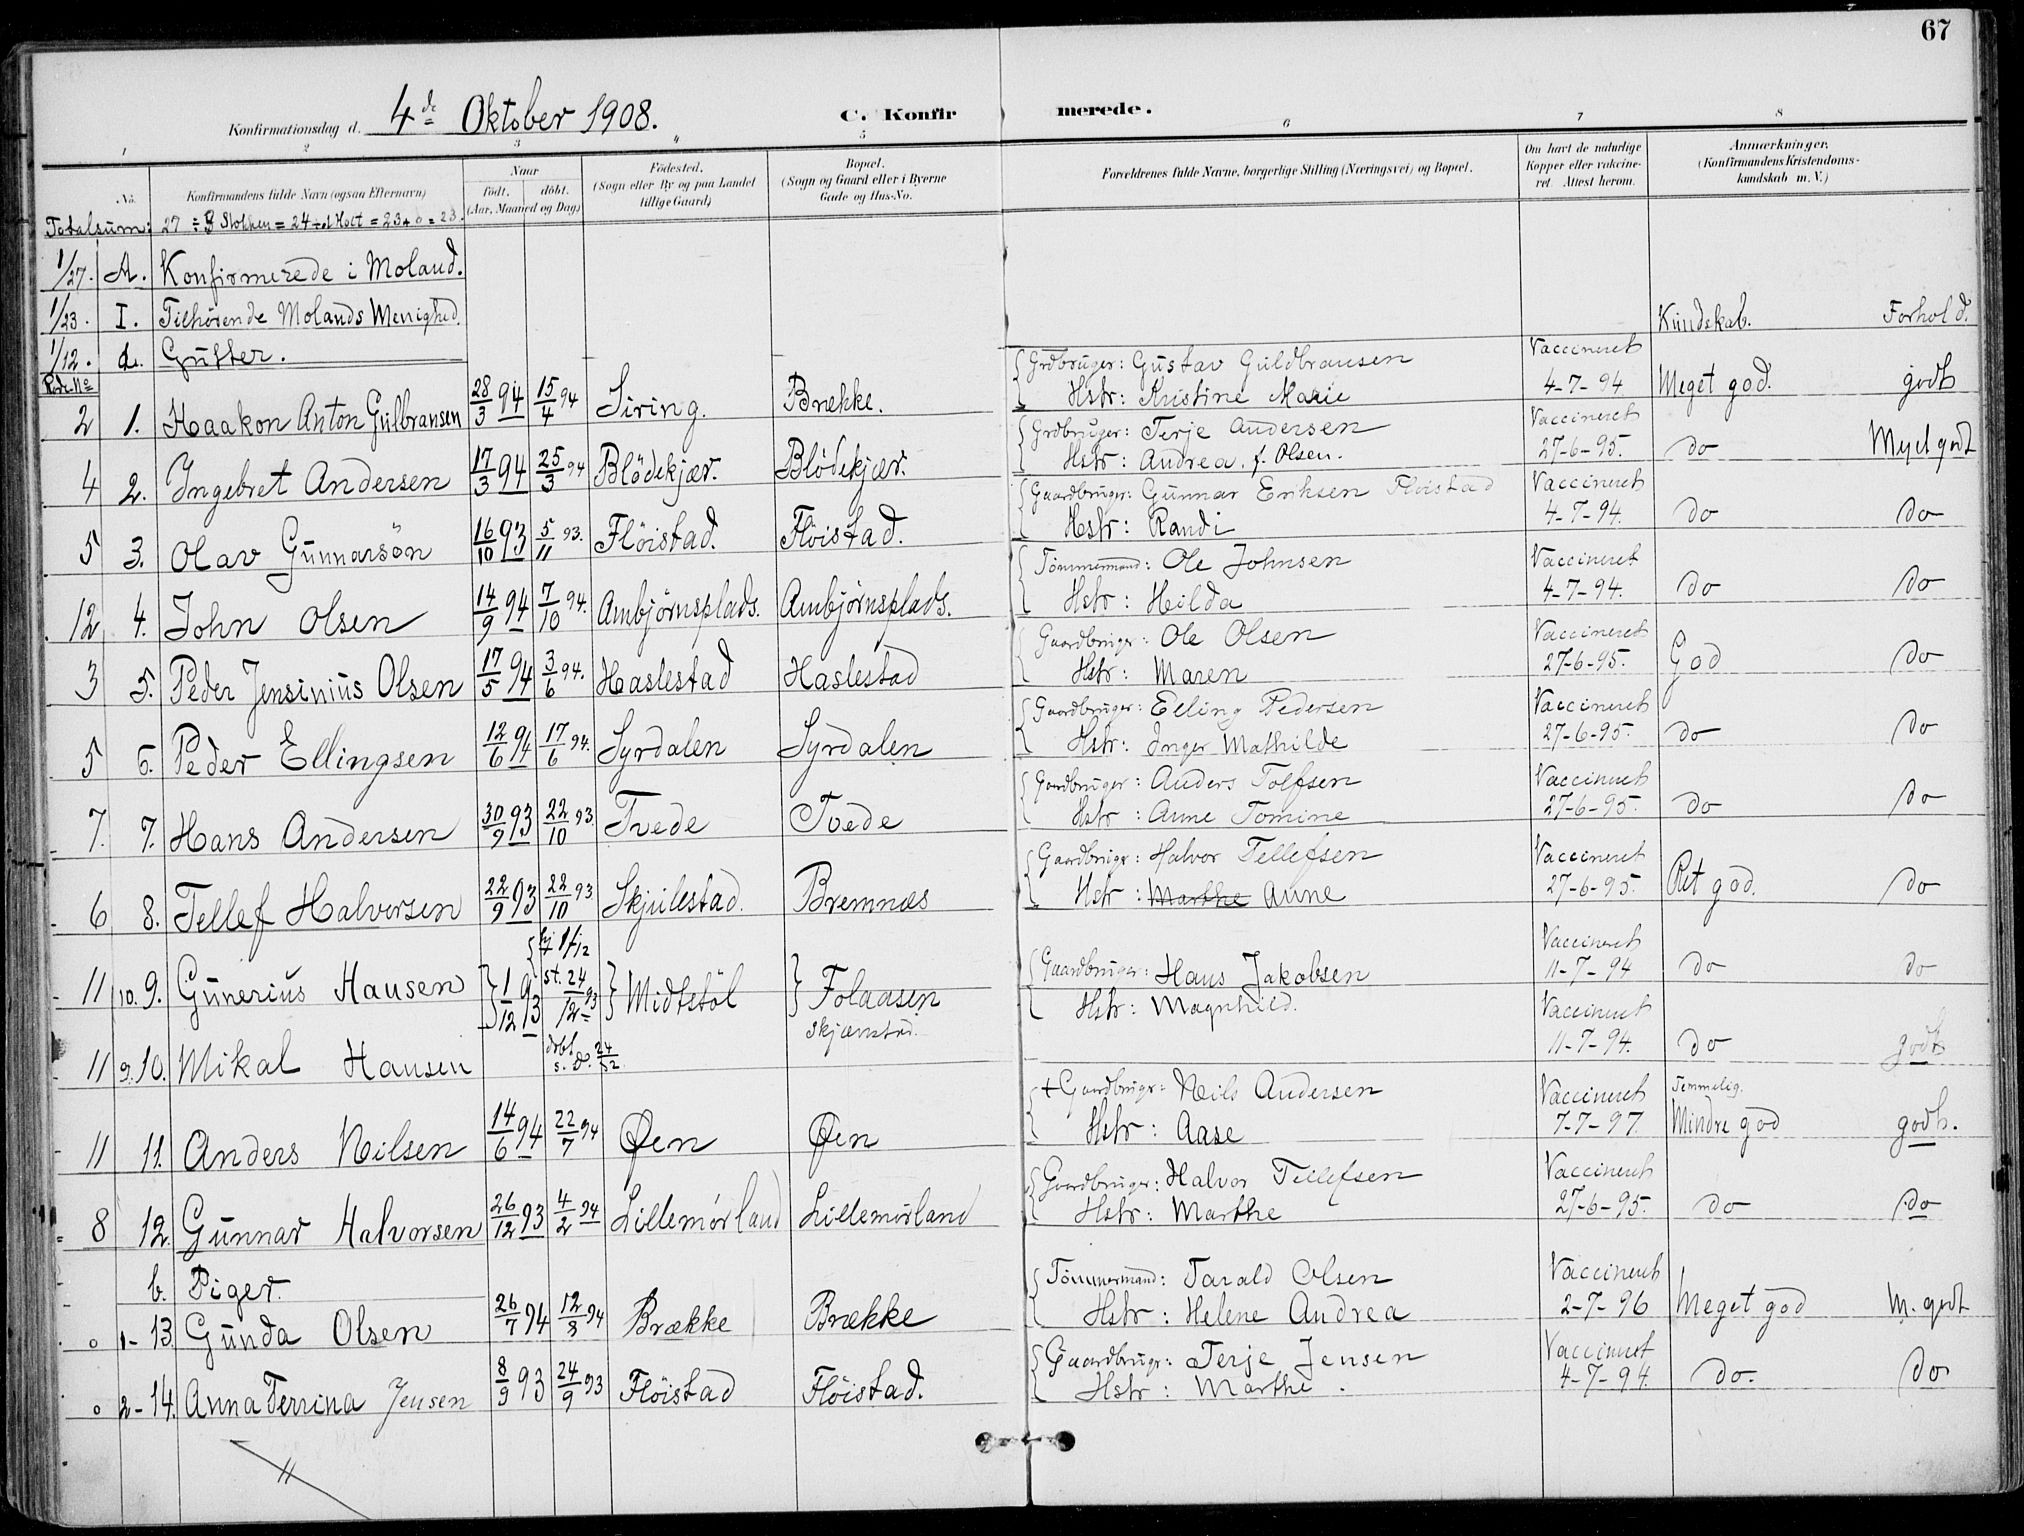 67
Konfirmationsdag d. 4de Oktober 1908. C. Konfirmerede.
1 2 3 4 5 6 7 8
No. Konfirmandens fulde Navn (ogsaa Efternavn) Naar födt. döbt. (Aar, Maaned og Dag) Födested. (Sogn eller By og paa Landet tillige Gaard) Bopæl. (Sogn og Gaard eller i Byerne Gade og Hus-No. Forældrenes fulde Navne, borgerlige Stilling (Næringsvei) og Bopæl. Om havt de naturlige Kopper eller vakcineret. Attest herom. Anmærkninger. (Konfirmandens Kristendomskundskab m. V.)
Totalsum: 27 ÷ 3 Stokken = 24 ÷ 1 Holt = 23 + 0 = 23.
1/27. A. Konfirmerede i Moland.
1/23. I. Tilhørende Molands Menighed. Kundskab. Forhold.
1/12. a. Gutter.
Rode No
{Grdbruger: Gustav Guldbransen Vaccineret
2 1. Haakon Anton Gulbransen 28/3 94 15/4 94 Siring. Brække. Hstr: Kristine Marie 4-7-94 Meget god. godt
{Grdbruger: Terje Andersen Vaccineret
4 2. Ingebret Andersen 17/3 94 25/3 94 Blödekjær. Blödekjær. Hstr: Andrea f. Olsen. 27-6-95. do Myet godt
{Gaardbruger: Gunnar Eriksen Flöistad Vaccineret
5 3. Olav Gunnarsön 16/10 93 5/11 93. Flöistad. Flöistad. Hstr: Randi 4-7-94. do do
{Tömmermand: Ole Johnsen Vaccineret
12 4. John Olsen 14/9 94 7/10 94. Ambjörnsplads. Ambjörnsplads. Hstr: Hilda 4-7-94. do do
{Gaardbruger: Ole Olsen Vaccineret
3 5. Peder Jensinius Olsen 17/5 94 3/6 94. Haslestad Haslestad Hstr: Maren 27-6-95. God do
{Gaardbruger: Elling Pedersen Vaccineret
5 6. Peder Ellingsen 12/6 94 17/6 94. Syrdalen Syrdalen Hstr: Inger Mathilde 27-6-95. do do
{Gaardbruger: Anders Tolfsen Vaccineret
7. 7. Hans Andersen 30/9 93 22/10 93. Tvede Tvede Hstr: Anne Tomine 27-6-95. do do
{Gaardbruger: Halvor Tellefsen Vaccineret
6 8. Tellef Halvorsen 22/9 93 22/10 93 Skjulestad. Bremnes Hstr: Marthe Anne 27-6-95. Ret god. do
11 10. 9. Gunerius Hansen 1/12 93 {hj 1/12 st. 24/12 93 Midtstöl Folaasen {Gaardbruger: Hans Jakobsen Vaccineret 11-7-94 do do
Skjænstad. Hstr: Magnhild. Vaccineret
11 9. 10. Mikal Hansen döbt s. d. 24/12 11-7-94. do godt
{+Gaardbruger: Nils Andersen Vaccineret Temmelig.
11 11. Anders Nilsen 14/6 94 22/7 94 Øen Øen Hstr: Aase 7-7-97 Mindre god godt.
{Gaardbruger: Halvor Tellefsen Vaccineret
8 12. Gunnar Halvorsen 26/12 93 4/2 94 Lillemörland Lillemörland Hstr: Marthe 27-6-95. do do
b. Piger. {Tömmermand: Tarald Olsen Vaccineret
0 1- 13. Gunda Olsen 26/7 94 12/8 94 Brække Brække Hstr: Helene Andrea 2-7-96 Meget god M. godt
{Gaardbruger: Terje Jensen Vaccineret
0 2- 14. Anna Terrina Jensen 8/9 93 24/9 93 Flöistad Flöistad. Hstr: Marthe. 4-7-94. do. do